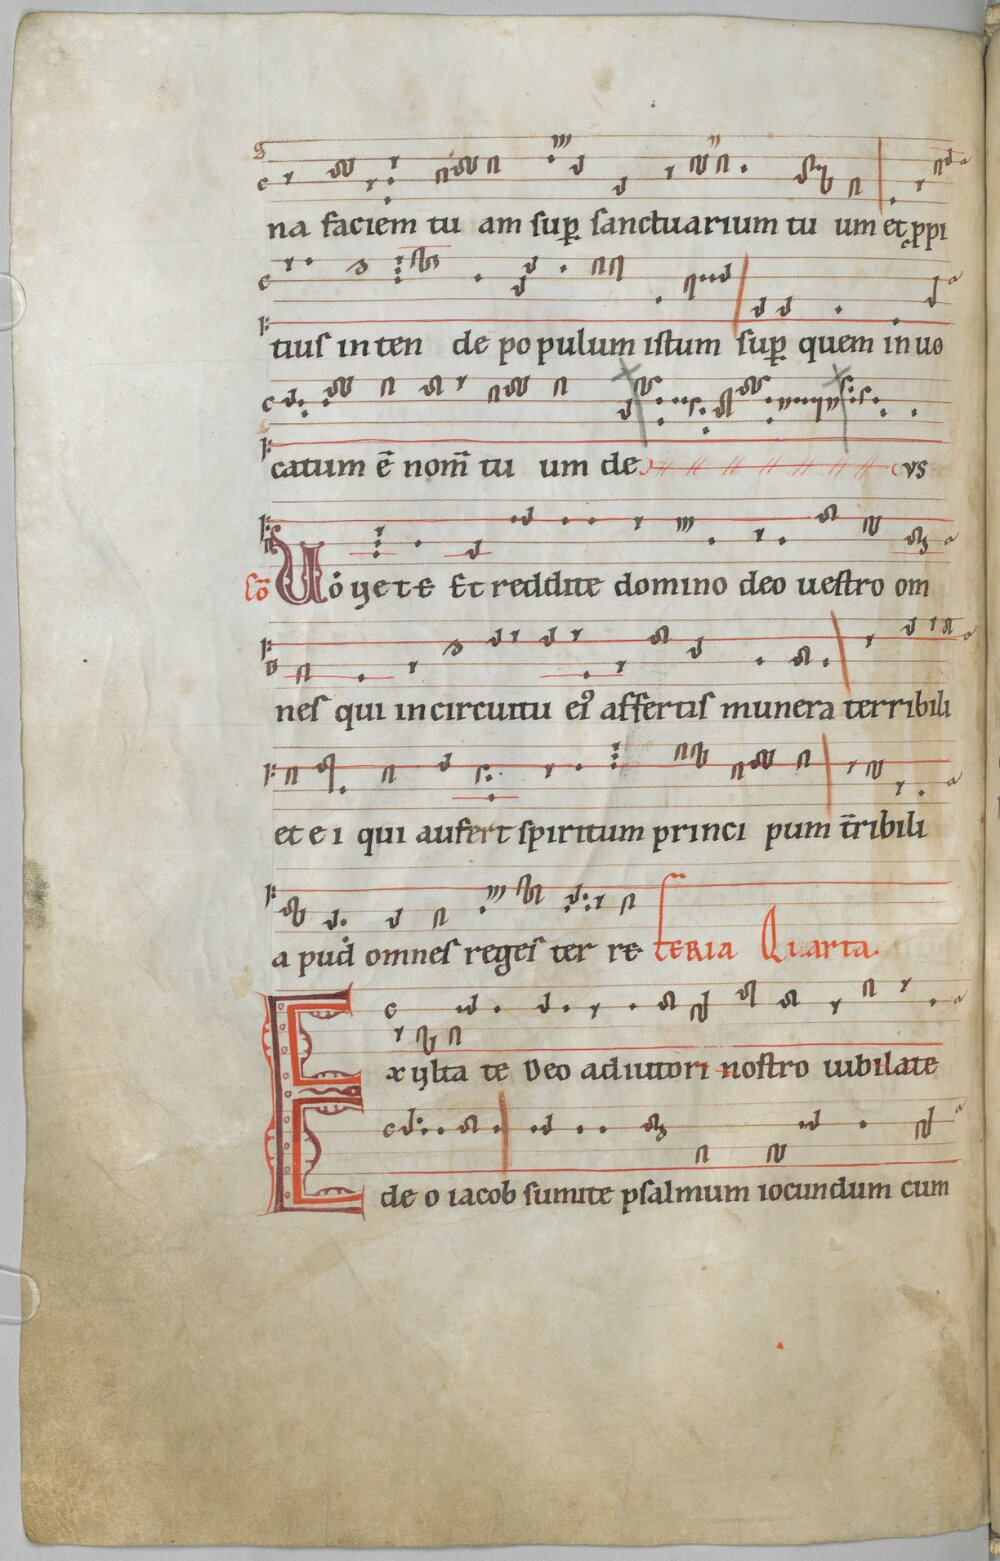 na faciem tu am sup̱ sanctuarium tu um et p̱pi
tius inten de po pulum istum sup̱ quem in uo
catum ē nom̄ tu um de us
Cō Uo ye te Et reddite domino deo uestro om
nes qui in circuitu ei᾽ affertis munera terribili
et e i qui aufert spiritum princi pum t̄ribili
a pud omnes reges ter re feria Quarta.
Exylta te Deo adiutori nostro iubilate
de o iacob sumite psalmum iocundum cum